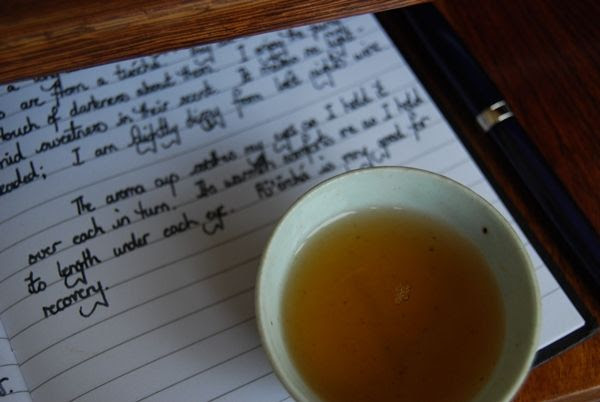 a
are from a tuocha.
touch of darkness about them. I enjoy the
sweetness in their scent. It makes me light
headed; I am lightly dizzy from last night's wine
The aroma cup soothes my eyes as I hold it
over each in turn. Its warmth comforts me as I hold
its length under each eye. Pu'erh is very good for
recovery.